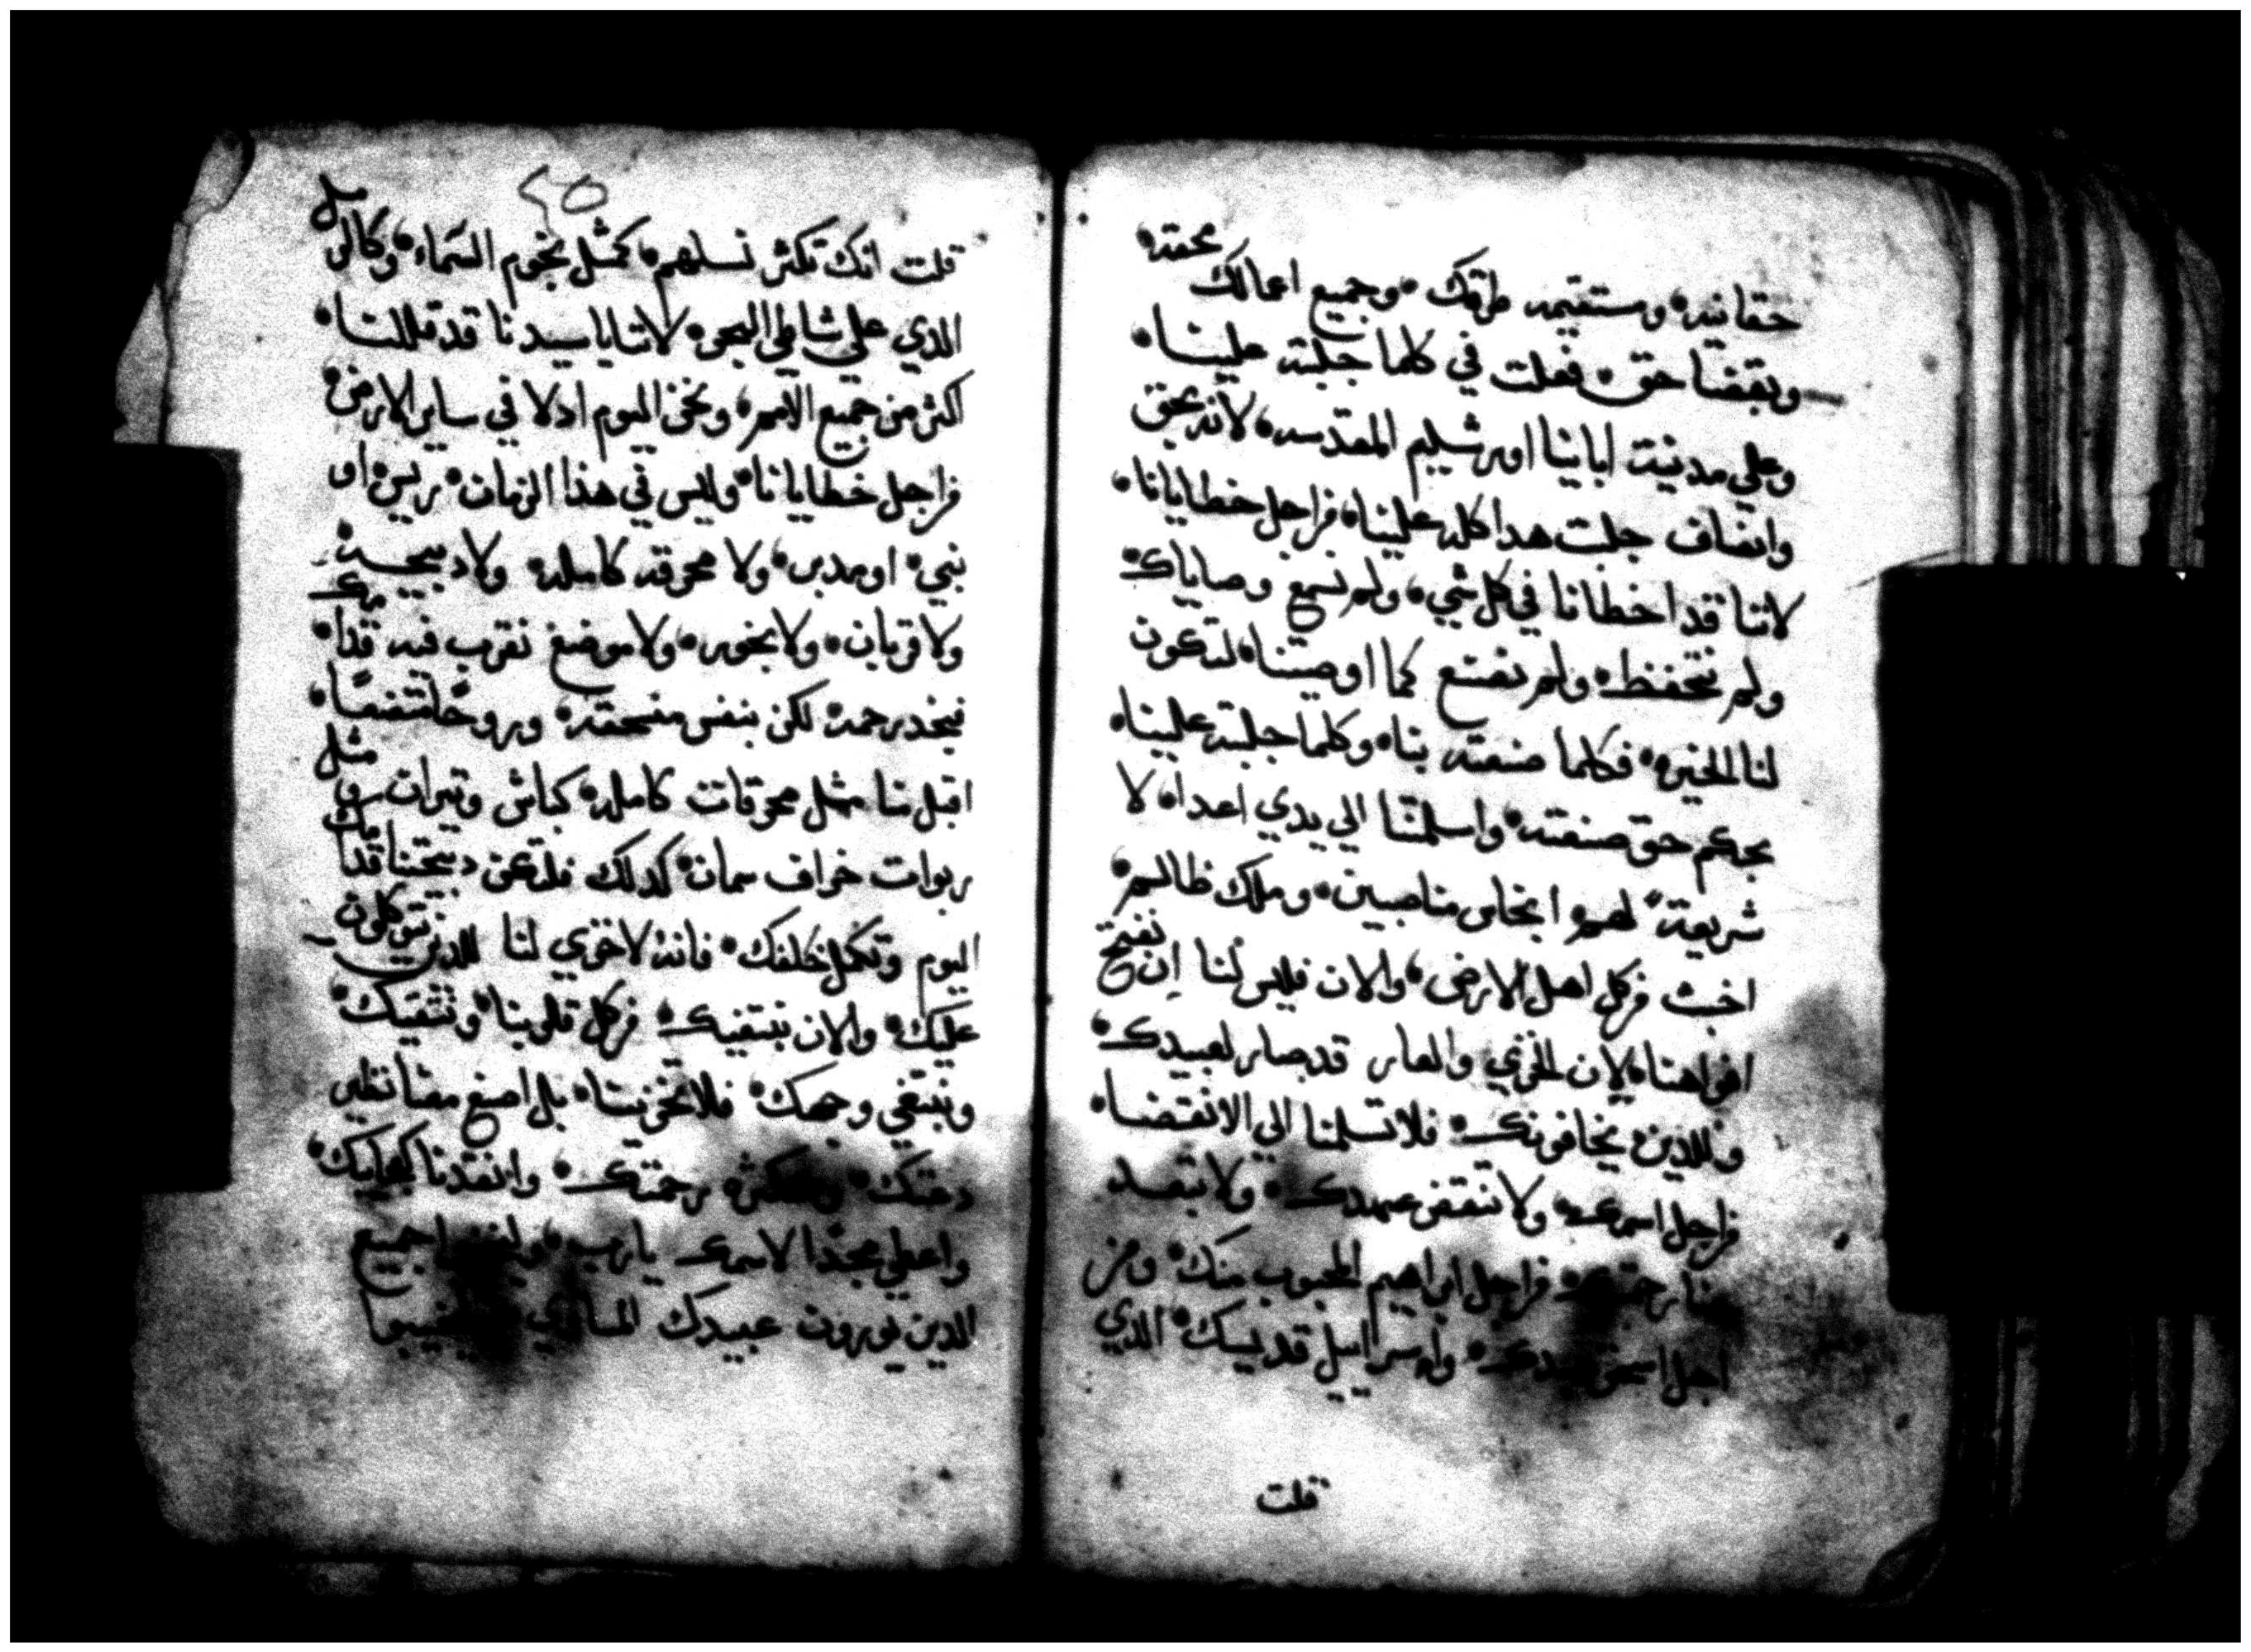 حقانيه ومستقيمه طرقك وجميع اعمالك محقه
وبقضا حق فعلت في كلما جبلته علينا
وعلي مدينت اباينا اورشليم المقدسه لانه بحق
وانصاف جلبت هدا كله علينا من اجل خطايانا
لاننا قد اخطانا في كل شي ولم نسمع وصاياك
ولم نتحفظ ولم نصنع كما اوصيتنا لتكون
لنا الخيره فكلما صنعته بنا وكلما جلبته علينا
بحكم حق صنعته واسلمتنا الي يدي اعداه لا
شريعة لهم انجاس مناصبين وملك ظالم
اخبث من كل اهل الارض والان فليس لنا ان نفتح
افواهنا لان الخزي والعار قد صار لعبيدك
وللدين يخافونك فلا تسلمنا الي الانقضا
من اجل اسمك ولا تنقض عهدك ولا تبعد
من اجل ابراهيم المحبوب منك ومن
اجل اسحق واسراييل قديسك الدي
قلت
٢٥
قلت انك تكثر نسلهم كمثل نجوم السماء وكالرمل
الدي علي شاطي البحر لاننا يا سيدنا قد قللنا
اكثر من جميع الامم ونحن اليوم ادلا في ساير الارض
من اجل خطايانا وليس في هذا الزمان ريس او
نبي او مدبر ولا محرقه كاملة ولا دبيحه
ولا قربان ولا بخور ولا موضع نقرب فيه قدامك
فنجد رحمه لكن بنفس منسحقه وروح متضعا
اقبلنا مثل محرقات كاملة كباش وتيران ومثل
ربوات خراف سمان كدلك فلتكن دبيحتنا قدامك
اليوم وتكمل خلفك فانه لا خزي لنا للدين يتوكلون
عليك والان نبتغيك من كل قلوبنا ونتقيك
ونبتغي وجهك فلا تخزينا بل اصنع معنا نظير
دعتك رحمتك وانقدنا كعجايبك
واعطي مجدا لاسمك يارب جميع
الدين يورون عبيدك المساوي